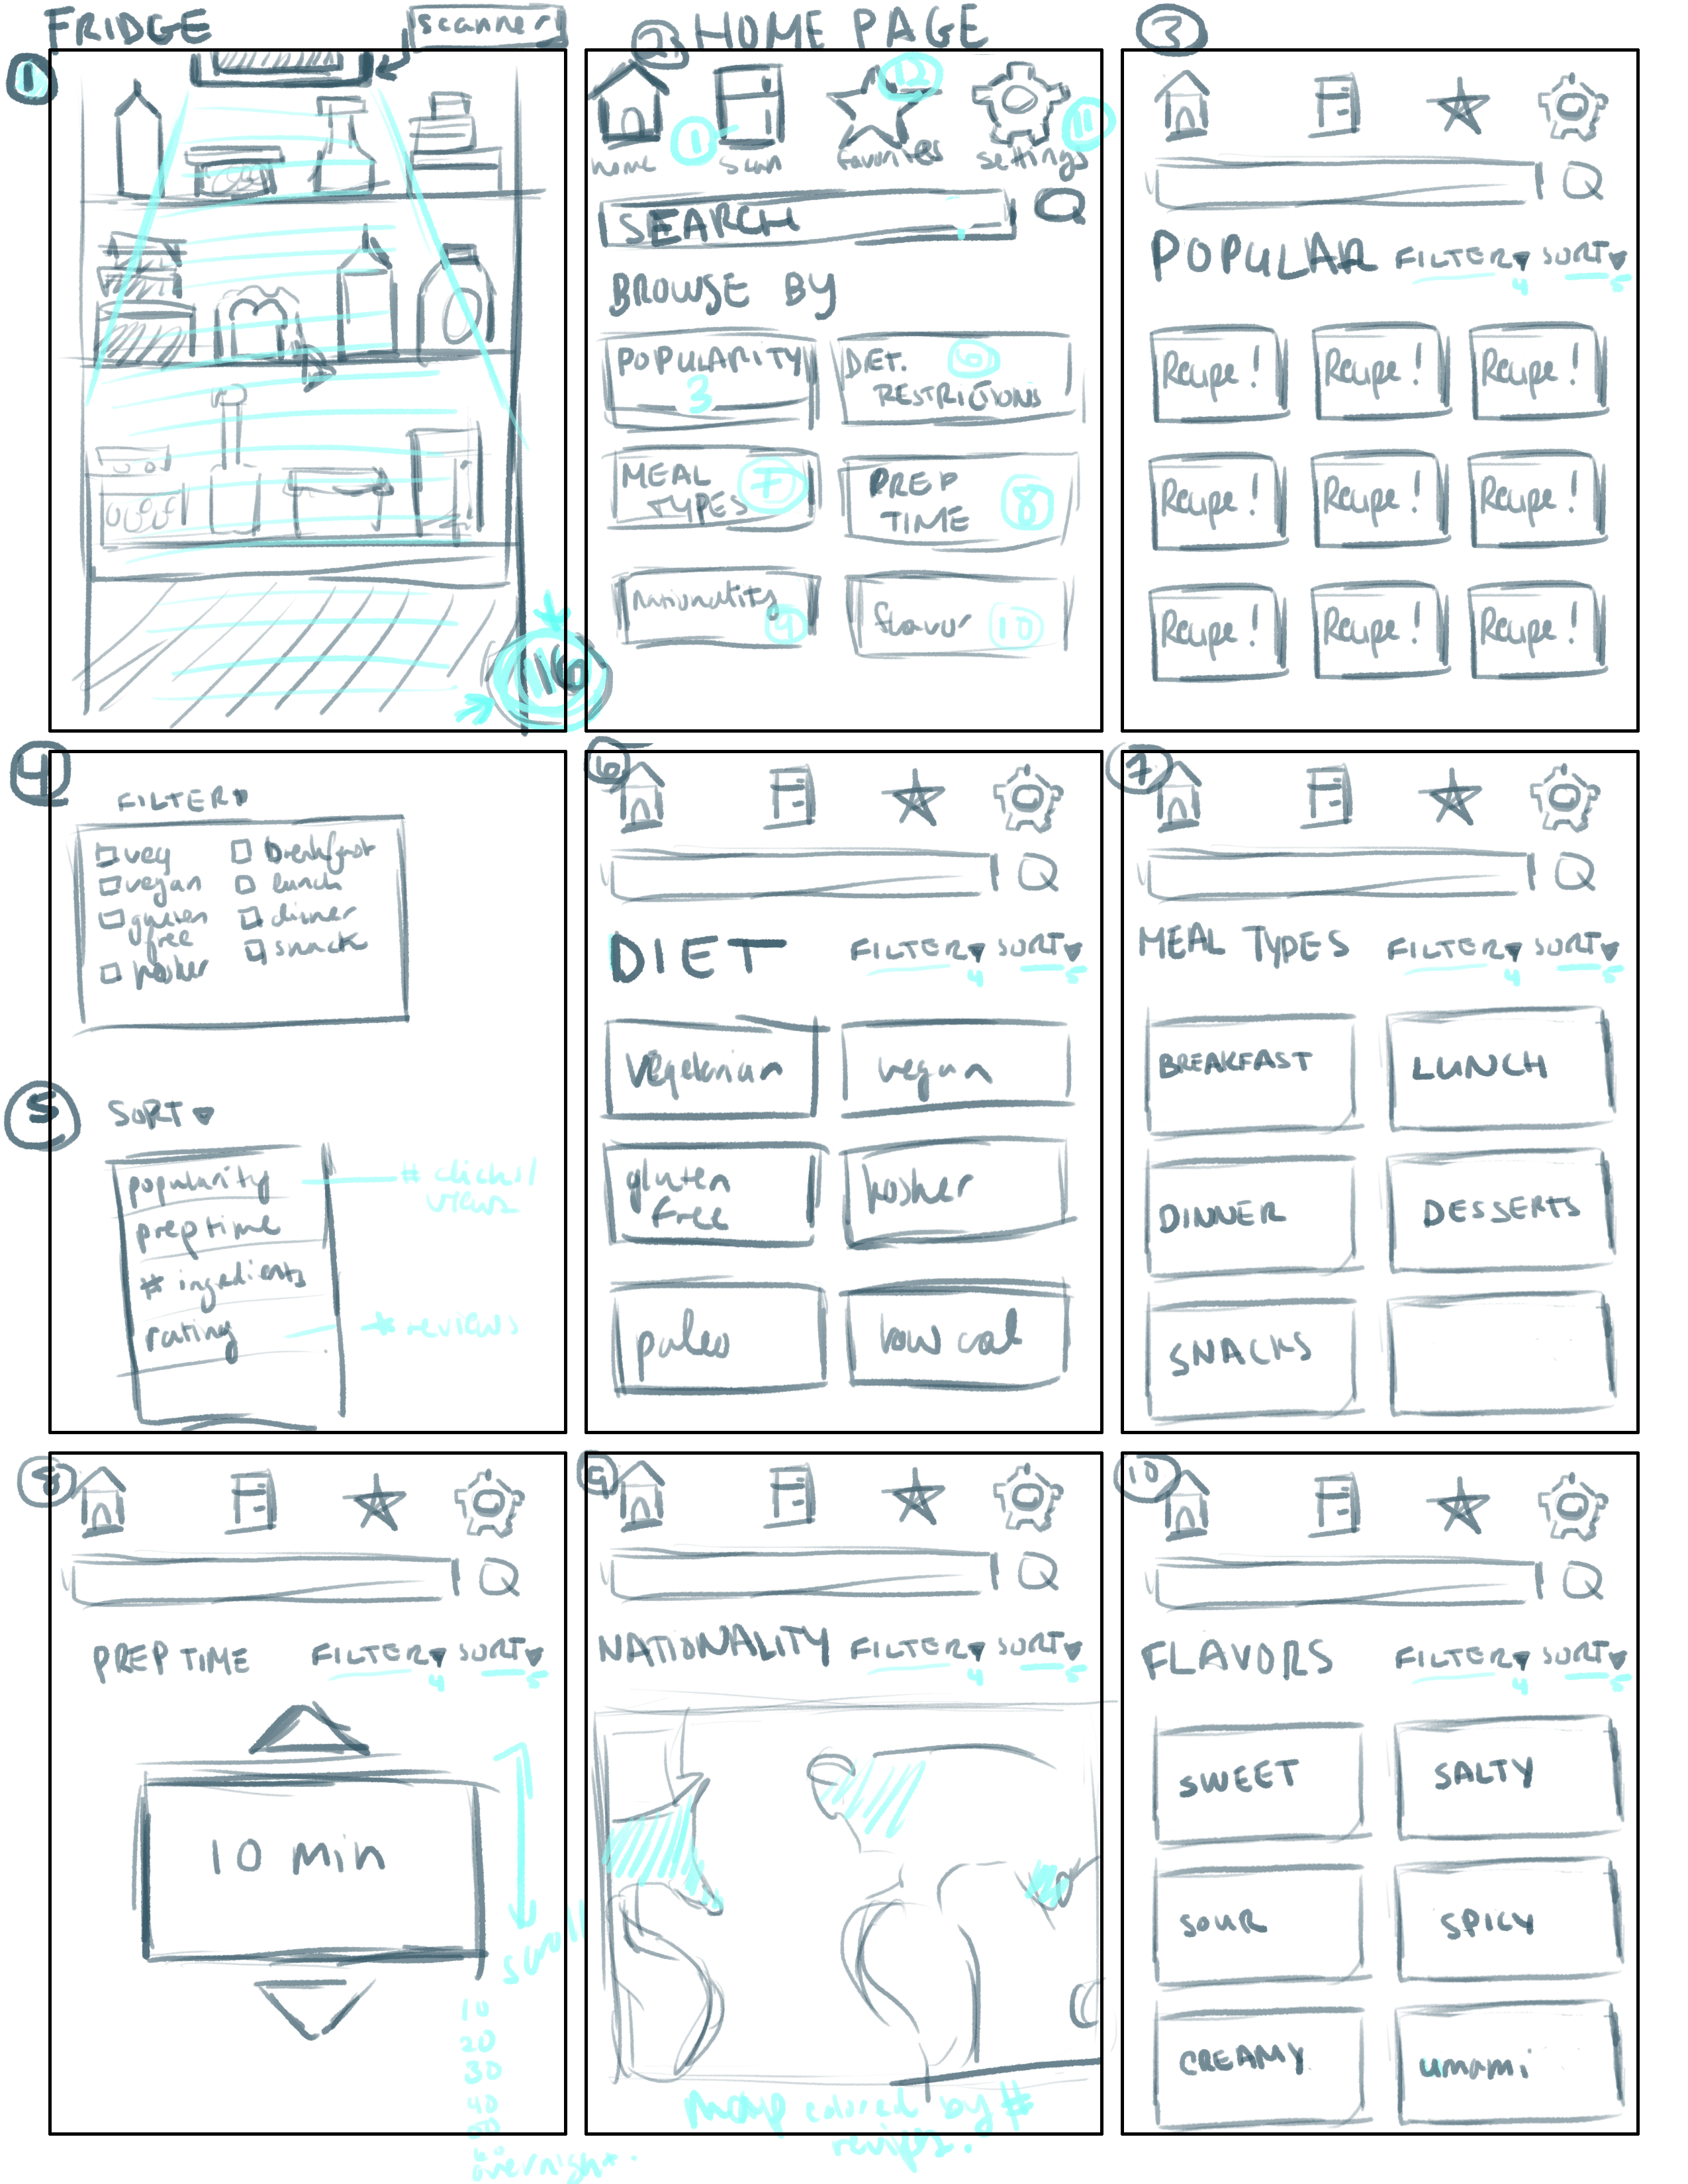 FRIDGE
scanner
1
116
2 HOME PAGE
12
1
11
home scan favorites settings
SEARCH
BROWSE BY
POPULARITY
3
DIET.
RESTRICTIONS
6
MEAL
TYPES
7
PREP
TIME
8
nationality
9
flavor 10
3
POPULAR FILTER SORT
4 5
Recipe! Recipe! Recipe!
Recipe! Recipe! Recipe!
Recipe! Recipe! Recipe!
4
FILTER
veg breakfast
vegan lunch
gluten
free
dinner
kosher
snack
5
SORT
popularity
# clicks/
views
prep time
# ingredients
rating
reviews
6
DIET FILTER SORT
4 5
Vegetarian vegan
gluten
free
kosher
paleo low cal
7
MEAL TYPES FILTER SORT
4 5
BREAKFAST LUNCH
DINNER DESSERTS
SNACKS
8
PREP TIME FILTER SORT
4 5
10 Min
scroll
10
20
30
40
overnight.
9
NATIONALITY FILTER SORT
4 5
Map colored by #
recipes.
10
FLAVORS FILTER SORT
4 5
SWEET SALTY
SOUR SPICY
CREAMY umami